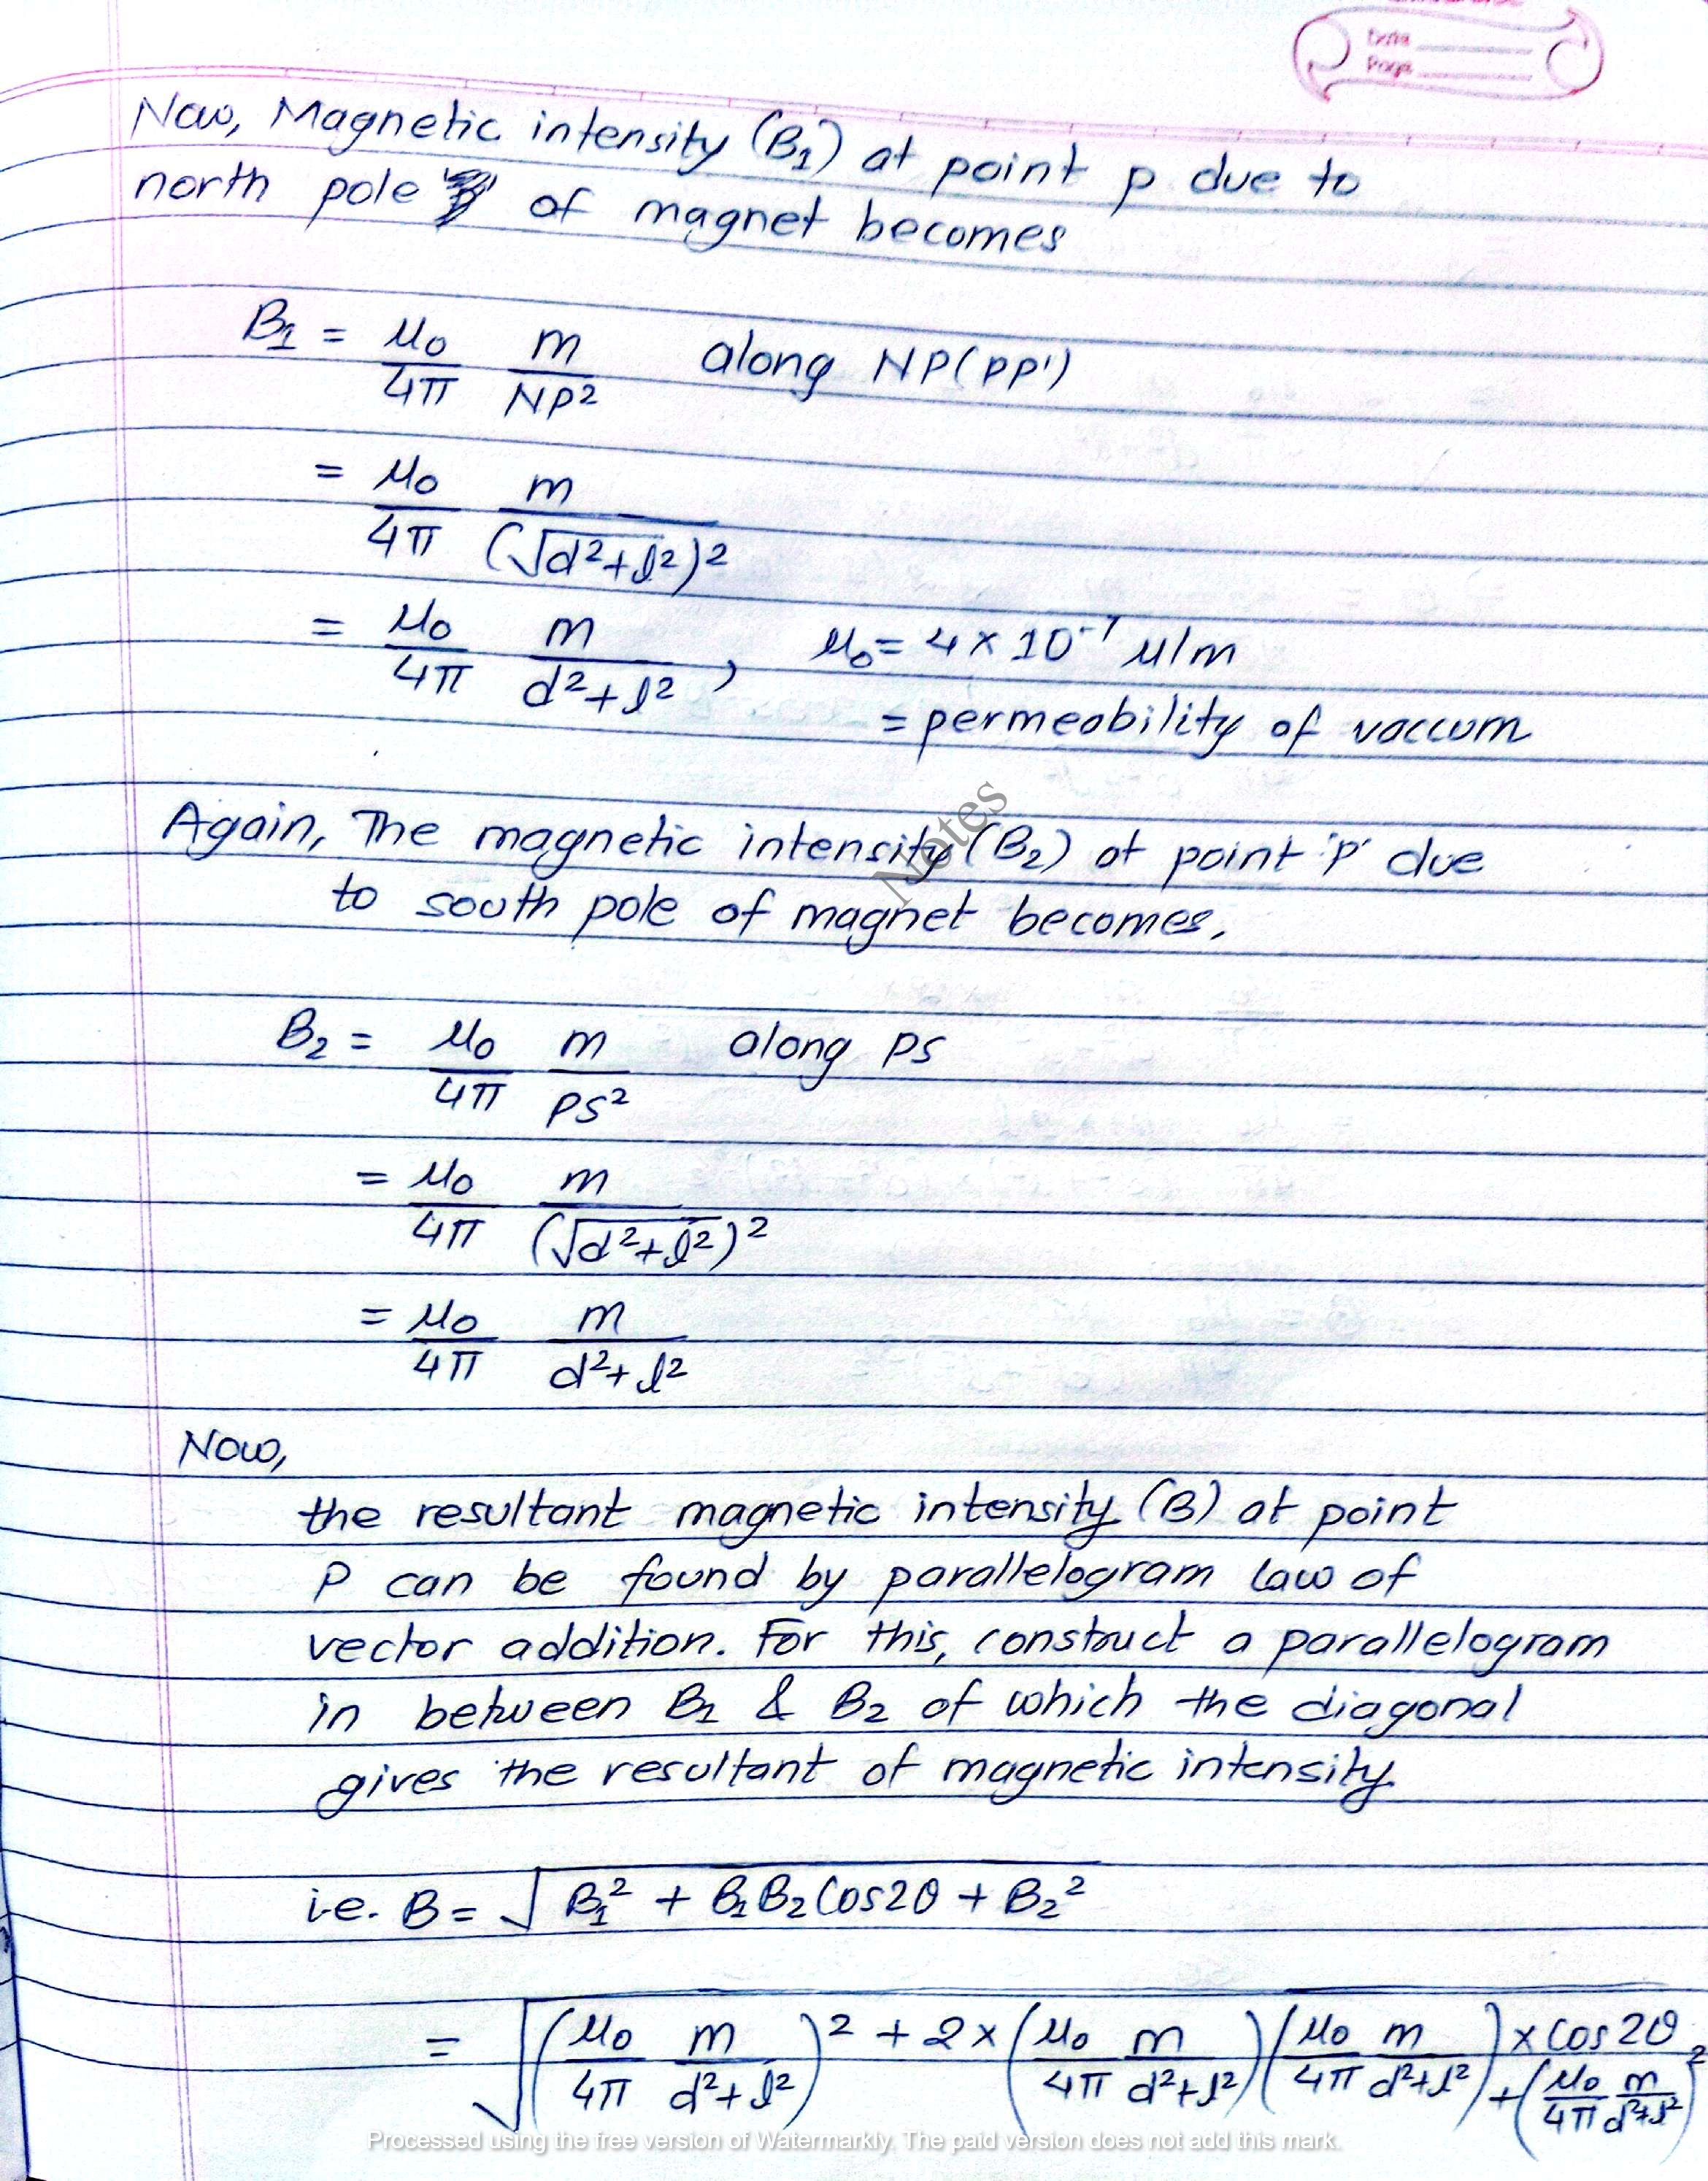 Date
Page
Now, Magnetic intensity (B₁) at point p due to
north pole of magnet becomes
B₁ = μ₀/4π m/NP² along NP(PP')
= μ₀/4π m/(√d²+l²)²
= μ₀/4π m/d²+l² , μ₀ = 4 × 10⁻⁷ μ/m
= permeability of vaccum
Again, The magnetic intensity (B₂) at point 'p' due
to south pole of magnet becomes,
Notes
B₂ = μ₀/4π m/PS² along PS
= μ₀/4π m/(√d²+l²)²
= μ₀/4π m/d²+l²
Now,
the resultant magnetic intensity (B) at point
P can be found by parallelogram law of
vector addition. For this, construct a parallelogram
in between B₁ & B₂ of which the diagonal
gives the resultant of magnetic intensity
i.e. B = √B₁² + B₁B₂ Cos2θ + B₂²
= √(μ₀/4π m/d²+l²)² + 2 × (μ₀/4π m/d²+l²)(μ₀/4π m/d²+l²) × Cos2θ + (μ₀/4π m/d²+l²)²
Processed using the free version of Watermarkly. The paid version does not add this mark.